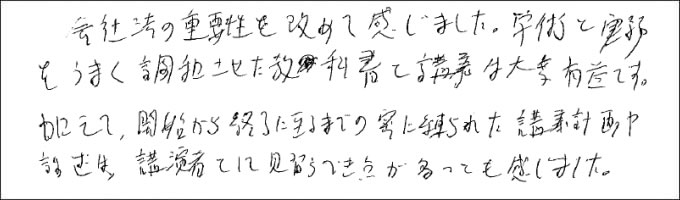 会社法の重要性を改めて感じました。学術と実務
をうまく調和させた教科書と講義は大変有益です。
加えて、開始から終了に至るまでの実に練られた講義計画や
話し方は、講演者として見習うべき点が多いとも感じました。